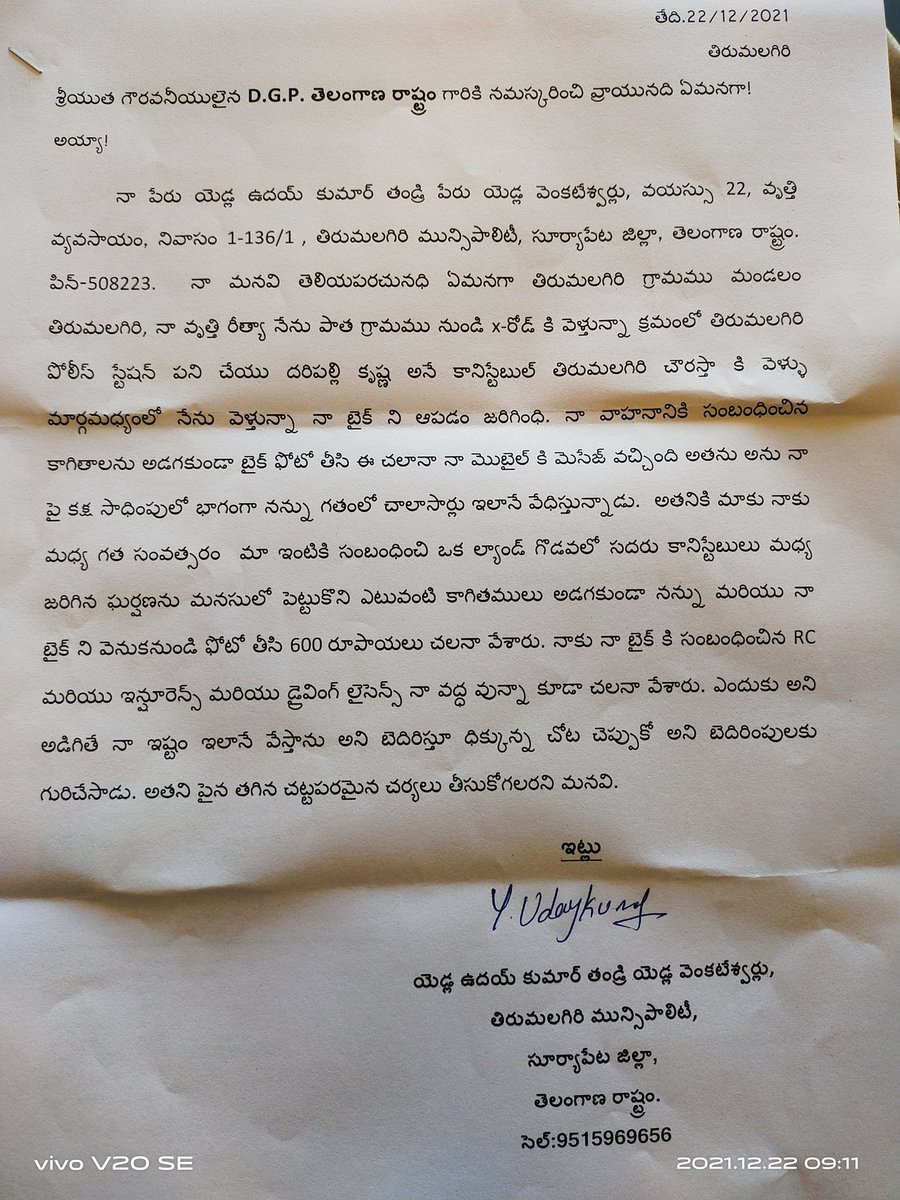 తేది.22/12/2021
తిరుమలగిరి
శ్రీయుత గౌరవనీయులైన D.G.P. తెలంగాణ రాష్ట్రం గారికి నమస్కరించి వ్రాయునది ఏమనగా!
అయ్యా!
నా పేరు యెడ్ల ఉదయ్ కుమార్ తండ్రి పేరు యెడ్ల వెంకటేశ్వర్లు, వయస్సు 22, వృత్తి
వ్యవసాయం, నివాసం 1-136/1 , తిరుమలగిరి మున్సిపాలిటీ, సూర్యాపేట జిల్లా, తెలంగాణ రాష్ట్రం.
పిన్-508223. నా మనవి తెలియపరచునధి ఏమనగా తిరుమలగిరి గ్రామము మండలం
తిరుమలగిరి, నా వృత్తి రీత్యా నేను పాత గ్రామము నుండి x-రోడ్ కి వెళ్తున్నా క్రమంలో తిరుమలగిరి
పోలీస్ స్టేషన్ పని చేయు దరిపల్లి కృష్ణ అనే కానిస్టేబుల్ తిరుమలగిరి చౌరస్తా కి వెళ్ళు
మార్గమధ్యంలో నేను వెళ్తున్నా నా బైక్ ని ఆపడం జరిగింధి. నా వాహనానికి సంబంధించిన
కాగితాలను అడగకుండా బైక్ ఫోటో తీసి ఈ చలానా నా మొబైల్ కి మెసేజ్ వచ్చింది అతను అను నా
పై కక్ష సాధింపులో భాగంగా నన్ను గతంలో చాలాసార్లు ఇలానే వేధిస్తున్నాడు. అతనికి మాకు నాకు
మధ్య గత సంవత్సరం మా ఇంటికి సంబంధించి ఒక ల్యాండ్ గొడవలో సదరు కానిస్టేబులు మధ్య
జరిగిన ఘర్షణను మనసులో పెట్టుకొని ఎటువంటి కాగితములు అడగకుండా నన్ను మరియు నా
బైక్ ని వెనుకనుండి ఫోటో తీసి 600 రూపాయలు చలనా వేశారు. నాకు నా బైక్ కి సంబంధించిన RC
మరియు ఇన్షూరెన్స్ మరియు డ్రైవింగ్ లైసెన్స్ నా వద్ధ వున్నా కూడా చలనా వేశారు. ఎందుకు అని
అడిగితే నా ఇష్టం ఇలానే వేస్తాను అని బెదిరిస్తూ ధిక్కున్న చోట చెప్పుకో అని బెదిరింపులకు
గురిచేసాడు. అతని పైన తగిన చట్టపరమైన చర్యలు తీసుకోగలరని మనవి.
ఇట్లు
Y. Udaykumar
యెడ్ల ఉదయ్ కుమార్ తండ్రి యెడ్ల వెంకటేశ్వర్లు,
తిరుమలగిరి మున్సిపాలిటీ,
సూర్యాపేట జిల్లా,
తెలంగాణ రాష్ట్రం.
సెల్:9515969656
vivo V20 SE
2021.12.22 09:11